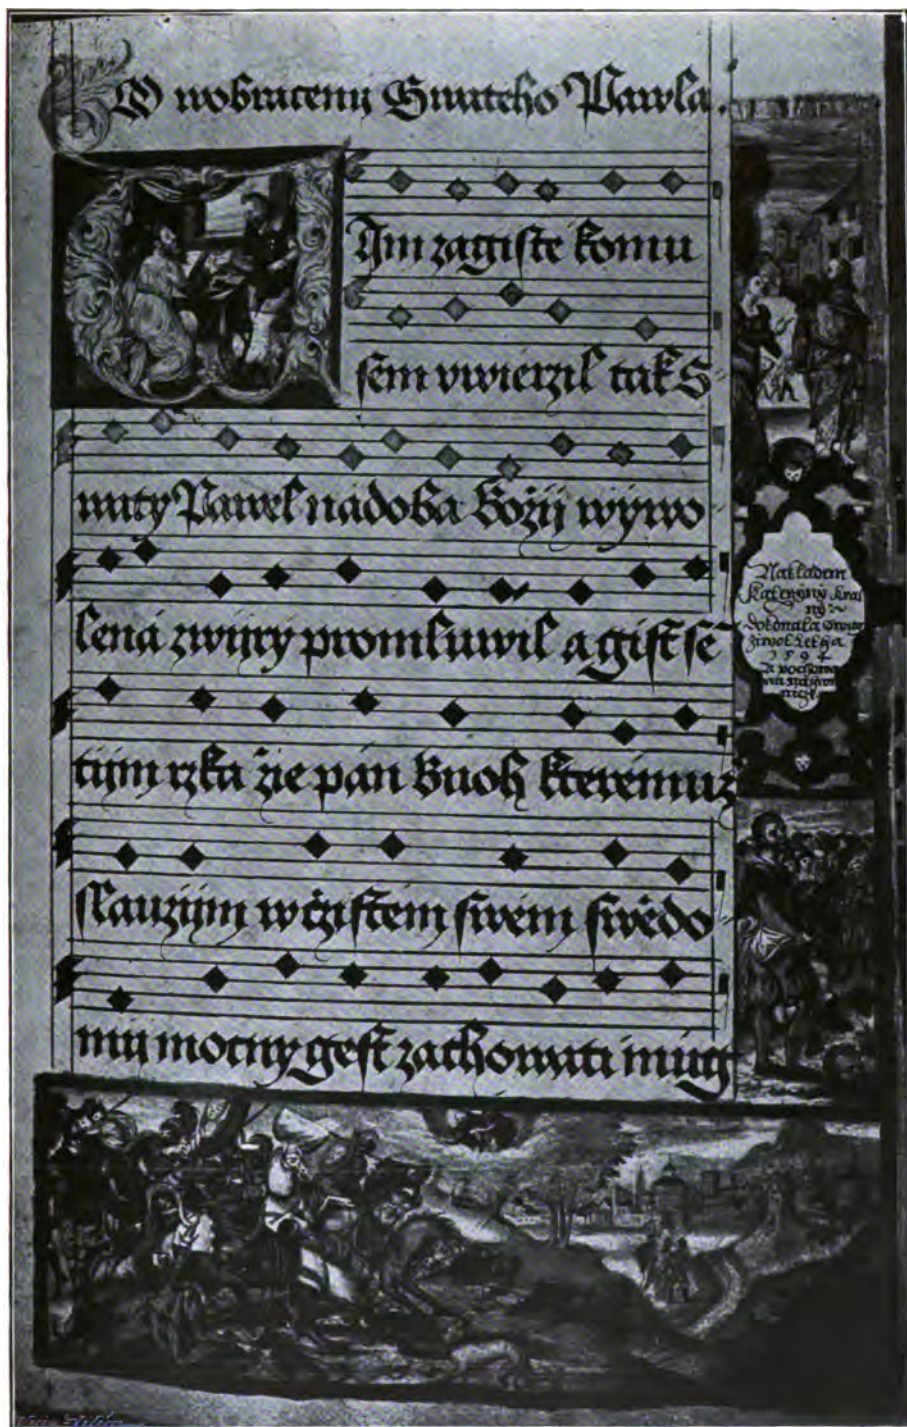 O wobraceny Swateho Pawla.
Gím zagiste komu
sem vwierzil tak S
waty Pawel nádoba Božij wýwo
lená zwíry promluwil a gist se
tijm rzka že pán Buoh kterémuž
slaužijm w čzistém swém swědo
mij mocny gest zachowati múg
Nakladem
Kateržiny
ný
dokonala
1594